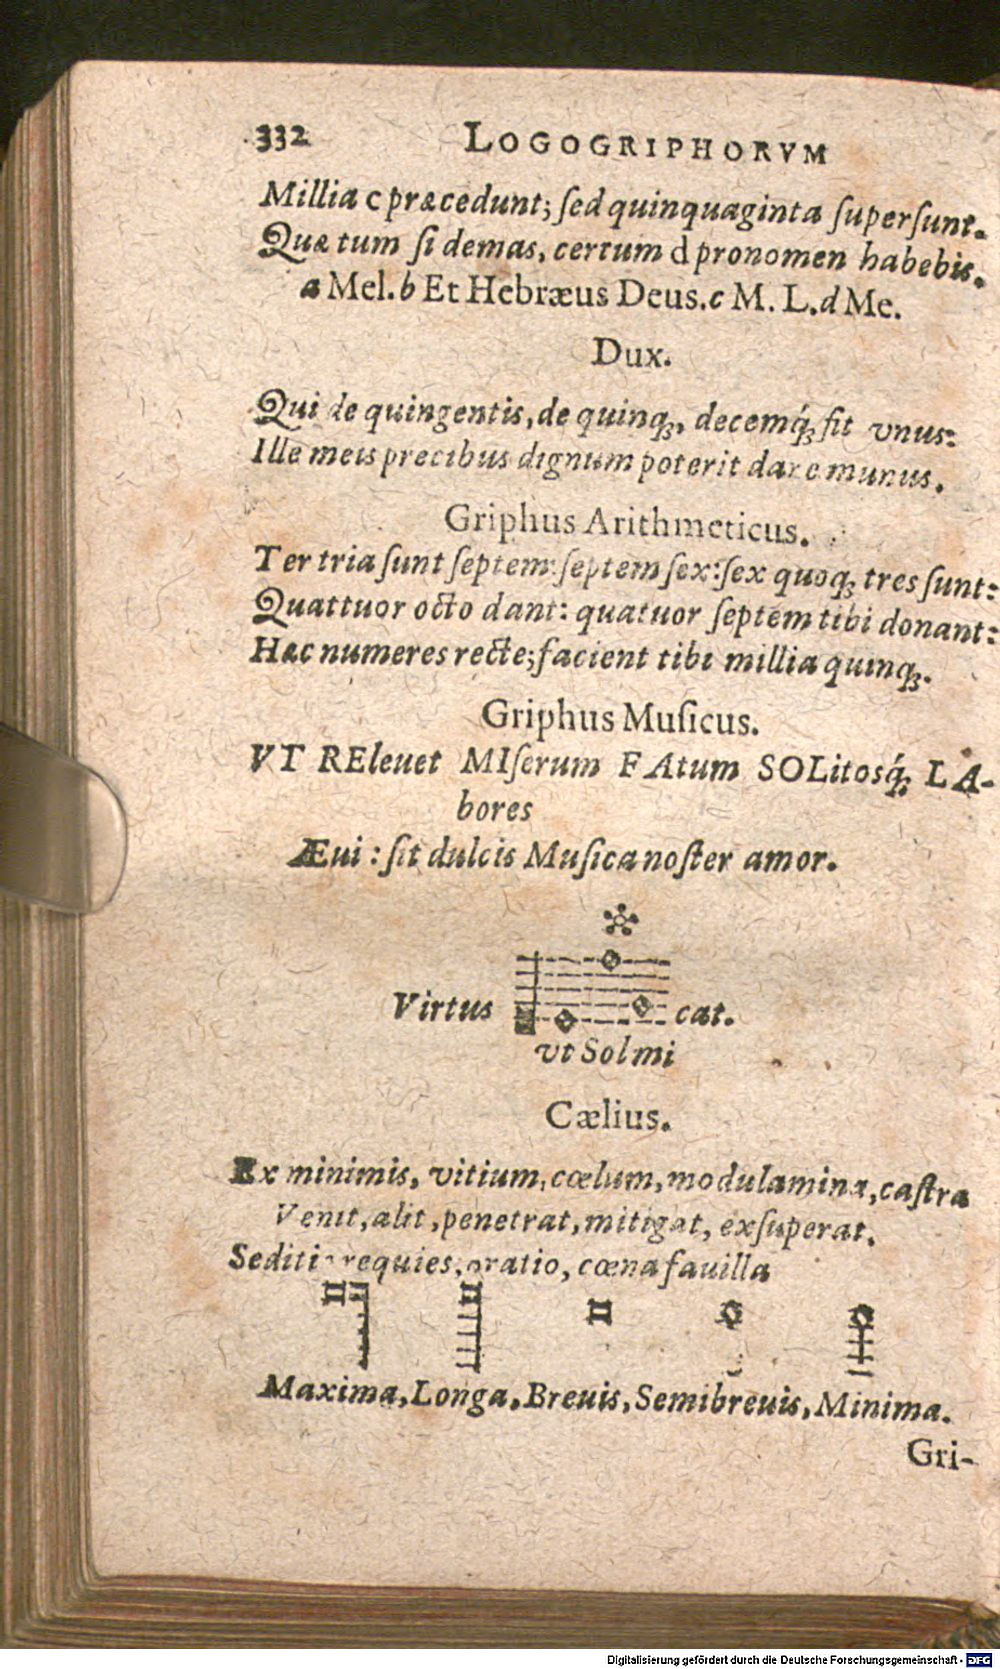 332 LOGOGRIPHORVM
Millia c præcedunt; ſed quinquaginta ſuperſunt.
Quæ tum ſi demas, certum d pronomen habebis.
a Mel. b Et Hebræus Deus. c M. L. d Me.
Dux.
Qui de quingentis, de quinq́ꝫ, decemq́ꝫ fit vnus:
Ille meis precibus dignum poterit dare munus.
Griphus Arithmeticus.
Ter tria ſunt ſeptem: ſeptem ſex: ſex quoqꝫ tres ſunt:
Quattuor octo dant: quatuor ſeptem tibi donant:
Hæc numeres recte; facient tibi millia quinqꝫ.
Griphus Muſicus.
VT REleuet MIſerum FAtum SOLitosq́ꝫ LA-
bores
Æui: ſit dulcis Muſica noſter amor.
Virtus cat.
vt Sol mi
Cælius.
Ex minimis, vitium, cœlum, modulamina, caſtra
Venit, alit, penetrat, mitigat, exſuperat.
requies, oratio, cœna fauilla
Maxima, Longa, Breuis, Semibreuis, Minima.
Gri-
Digitalisierung gefördert durch die Deutsche Forschungsgemeinschaft - DFG